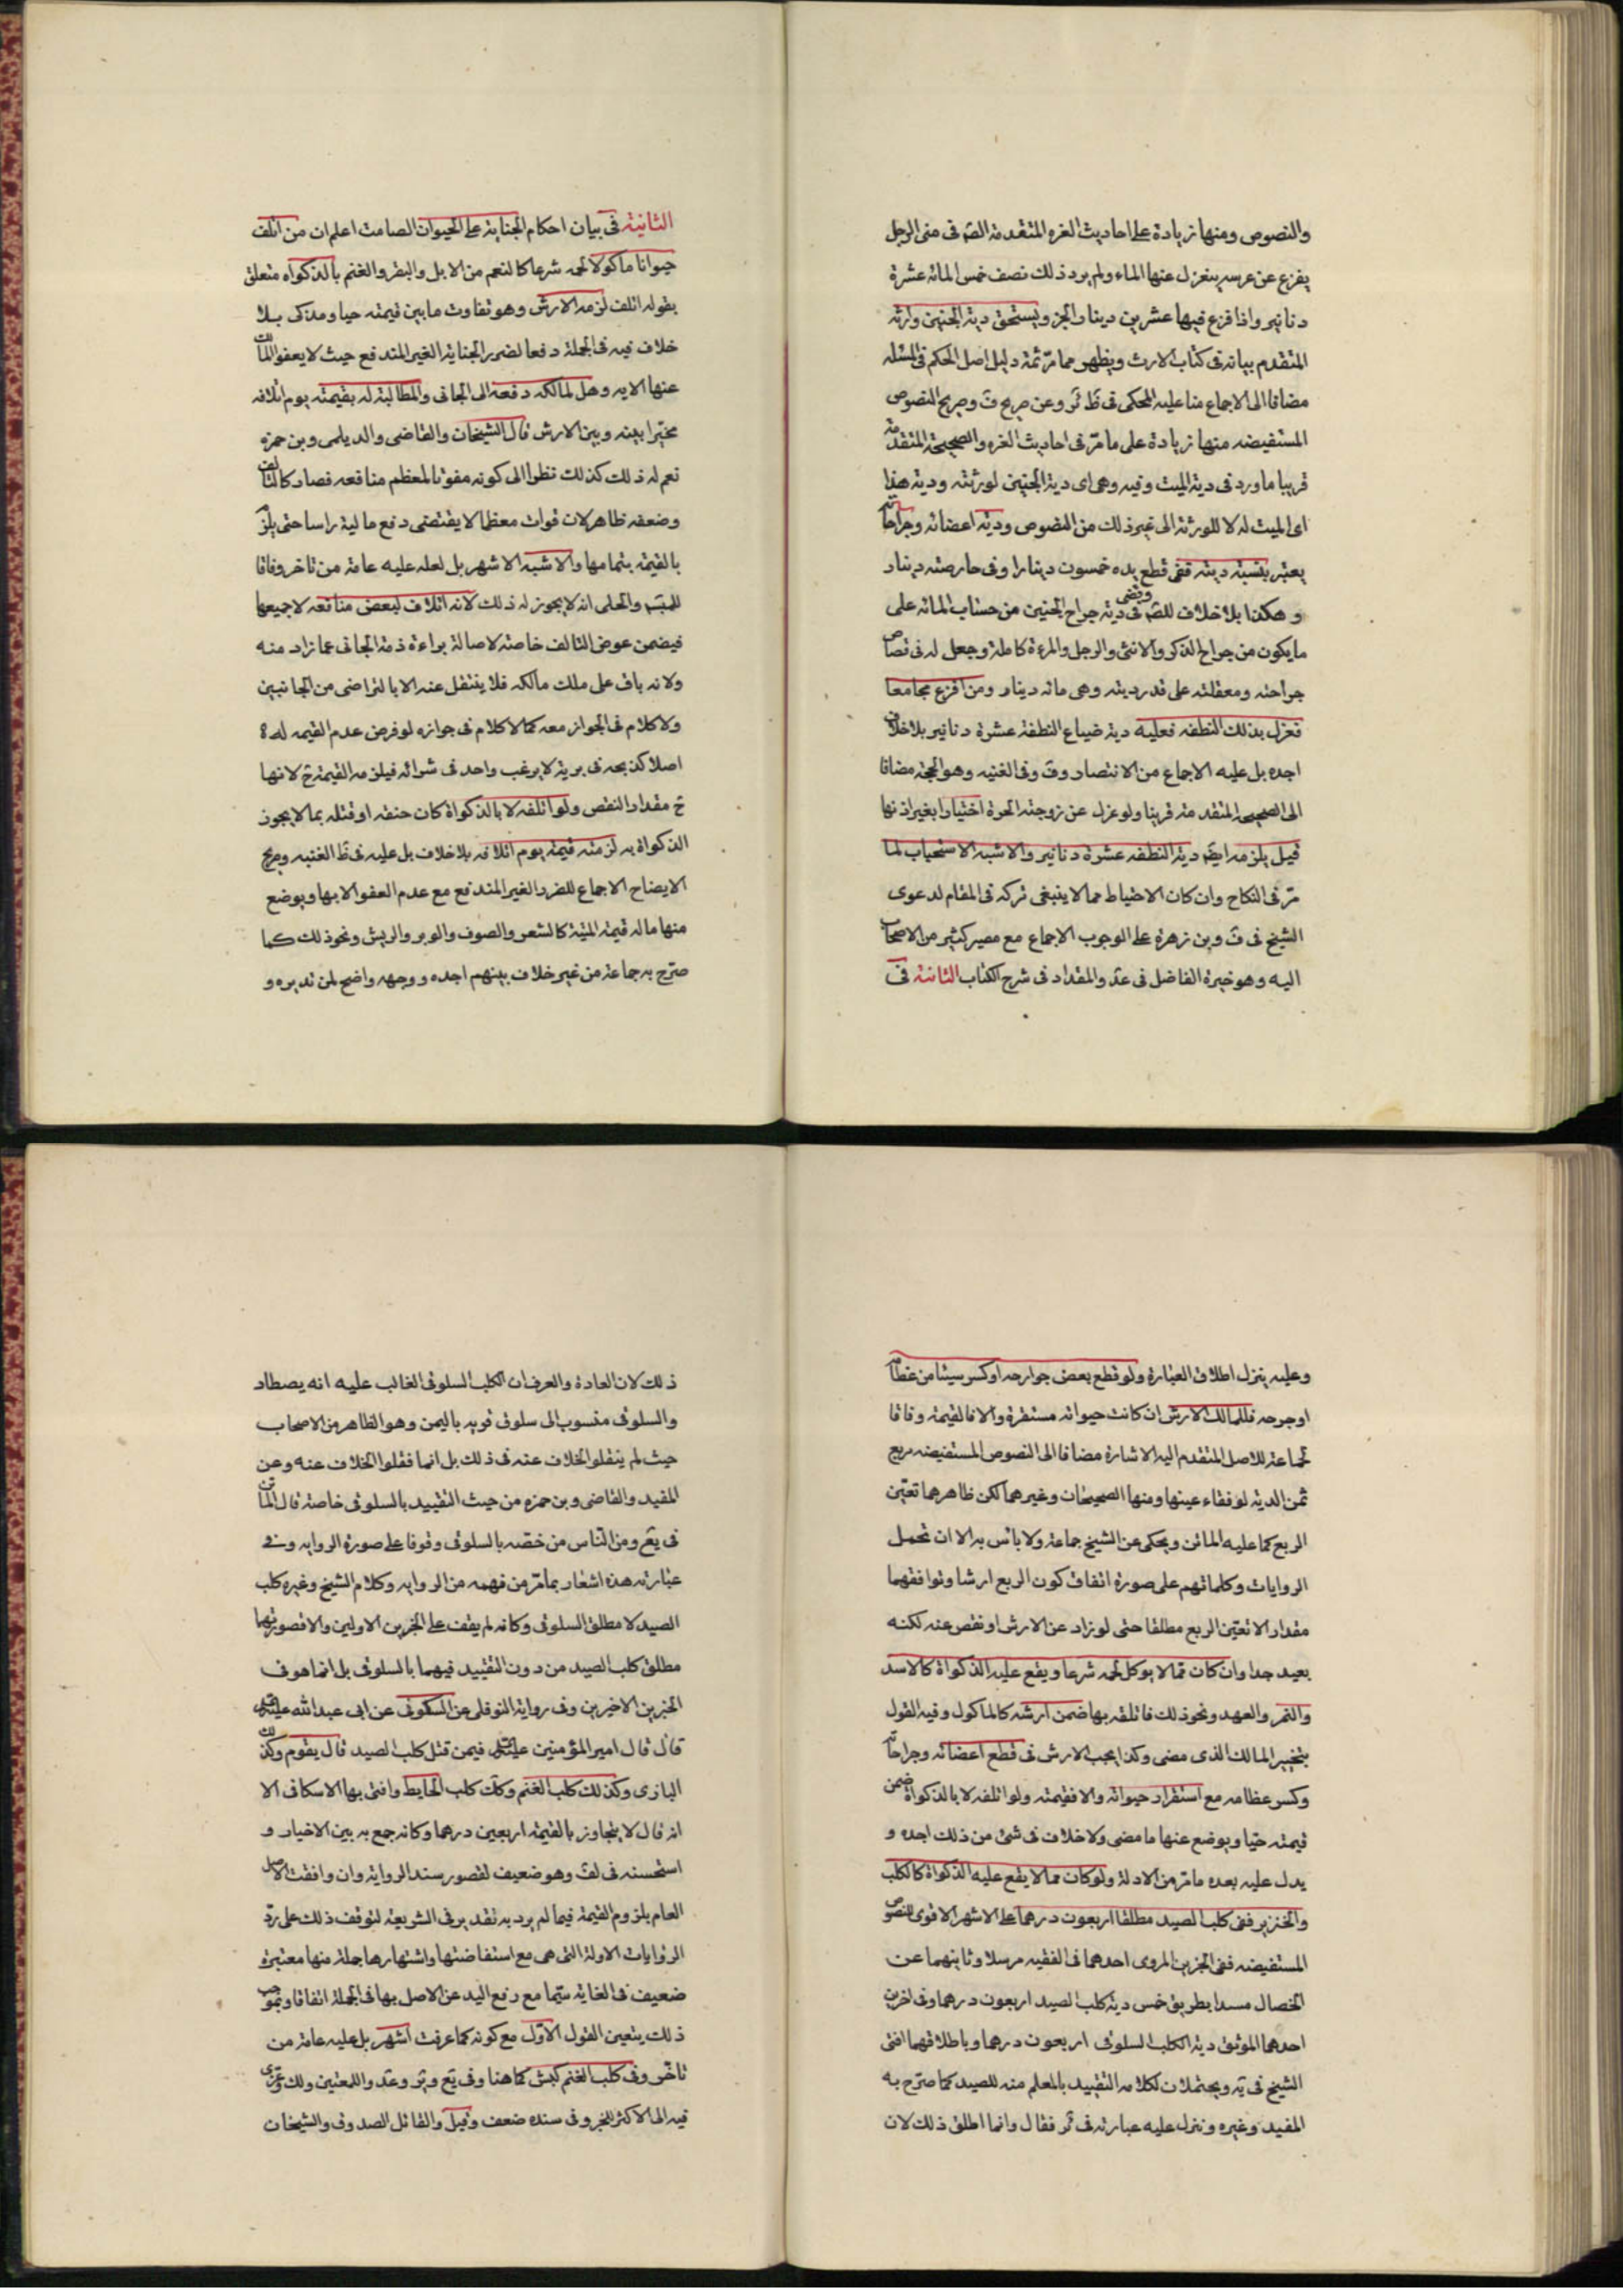 والنصوص ومنها زيادة على احاديث الغره المتقدمة الصّم فى منى الرجل
يفزع عن عرسه ينعزل عنها الماء ولم يرد ذلك نصف خمس المائه عشرة
دنانير واذا فزع فيها عشرين دينارا الجز ويستحق دية الجنين وارثه
المتقدم بيانه فى كتاب الارث ويظهر مما مرّ ثمة دليل اصل الحكم فى المسئله
مضافا الى الاجماع منا عليه المحكى فى ظَ ئر وعن صريح فَ وصريح النصوص
المستفيضه منها زيادة على ما مرّ فى احاديث الغره والصحيحة المتقدمة
قريبا ما ورد فى دية الميت وفيه وهى اى دية الجنين لورثته ودية هذا
اى الميت له لا للورثة الى غير ذلك من النصوص ودية اعضائه وجراحاته
يعتبر بنسبة ديته ففى قطع يده خمسون دينارا وفى حارصته دينار
وهكذا بلا خلاف للصّم وقضى فى دية جراح الجنين من حساب المائه على
ما يكون من جراح الذكر والانثى والرجل والمرءة كاملة وجعل له فى قصاص
جراحته ومعقلته على قدر ديته وهى مائه دينار ومن افزع مجامعا
فعزل بذلك النطفه فعليه دية ضياع النطفة عشرة دنانير بلا خلاف
اجده بل عليه الاجماع من الانتصار وفَ وفى الغنيه وهو الحجة مضافا
الى الصحيح المتقدمة قريبا ولو عزل عن زوجته الحرة اختيارا بغير اذنها
قيل يلزمه ايضَ دية النطفه عشرة دنانير والاشبه الاستحباب لما
مرّ فى النكاح وان كان الاحتياط مما لا ينبغى تركه فى المقام لدعوى
الشيخ فى فَ وبن زهرة على الوجوب الاجماع مع مصير كثير من الاصحاب
اليه وهو خيرة الفاضل فى عدَ والمقداد فى شرح الكتاب الثانية فى
الثانية فى بيان احكام الجناية على الحيوان الصامت اعلم ان من اتلف
حيوانا ماكولا لحمه شرعا كالنعم من الابل والبقر والغنم بالذكواه متعلق
بقوله اتلف لزمه الارش وهو تفاوت ما بين قيمته حيا ومذكى بلا
خلاف فيه فى الجملة دفعا لضرر الجناية الغير المندفع حيث لا يعفو المالك
عنها الا به وهل لمالكه دفعه الى الجانى والمطالبة له بقيمته يوم اتلافه
مخيّرا بينه وبين الارش قال الشيخان والقاضى والديلمى وبن حمزه
نعم له ذلك كذلك نظرا الى كونه مفوتا لمعظم منافعه فصار كالتالف
وضعفه ظاهر لان فوات معظما لا يقتضى دفع مالية راسا حتى يلزم
بالقيمة بتمامها والاشبه الاشهر بل لعله عليه عامة من تاخر وفاقا
للمبسَ والحلى انه لا يجوز له ذلك لانه اتلاف لبعض منافعه لا جميعها
فيضمن عوض التالف خاصة لاصالة براءة ذمة الجانى عما زاد منه
ولانه باق على ملك مالكه فلا ينتقل عنه الا بالتراضى من الجانبين
ولا كلام فى الجواز معه كما لا كلام فى جوازه لو فرض عدم القيمه له
اصلا كذبحه فى برية لا يرغب واحد فى شرائه فيلزمه القيمة حَ لانها
حَ مقدار النقص ولو اتلفه لا بالذكواة كان حنفه او قتله بما لا يجوز
الذكواة به لزمته قيمته يوم اتلافه بلا خلاف بل عليه فى ظَ الغنيه وصريح
الايضاح الاجماع للضرر الغير المندفع مع عدم العفو الا بها ويوضع
منها ماله قيمة الميتة كالشعر والصوف والوبر والريش ونحو ذلك كما
صرّح به جماعة من غير خلاف بينهم اجده ووجهه واضح لمن تدبره و
وعليه ينزل اطلاق العبارة ولو قطع بعض جوارحه او كسر سيئا من عظامه
او جرحه فللمالك الارش ان كانت حيواته مستقرة والا فالقيمة وفاقا
لجماعة للاصل المتقدم اليه الاشارة مضافا الى النصوص المستفيضه بربع
ثمن الدية لو فقاء عينها ومنها الصحيحان وغيرهما لكن ظاهرهما تعيّن
الربع كما عليه الماتن ويحكى عن الشيخ جماعة ولا باس به الا ان تحمل
الروايات وكلماتهم على صورة اتفاق كون الربع ارشا وتوافقهما
مقدارا لا تعيّن الربع مطلقا حتى لو زاد عن الارش او نقص عنه لكنه
بعيد جدا وان كان ممّا لا يوكل لحمه شرعا ويقع عليه الذكواة كالاسد
والنمر والعهد ونحو ذلك فاتلفه بها ضمن ارشه كالماكول وفيه القول
بتخيير المالك الذى مضى وكذا يجب الارش فى قطع اعضائه وجراحاته
وكسر عظامه مع استقرار حيواته والا فقيمته ولو اتلفه لا بالذكواة ضمن
قيمته حيّا ويوضع عنها ما مضى ولا خلاف فى شئ من ذلك اجده و
يدل عليه بعده ما مرّ من الادلة ولو كان مما لا يقع عليه الذكواة كالكلب
والخنزير ففى كلب الصيد مطلقا اربعون درهما على الاشهر الاقوى للنصوص
المستفيضه ففى الخبرين المروى احدهما فى الفقيه مرسلا وثانيهما عن
الخصال مسندا بطريق خمس دية كلب الصيد اربعون درهما وفى اخرين
احدهما الموثق دية الكلب السلوقى اربعون درهما وباطلاقهما افتى
الشيخ فى يَه ويحتملان لكلامه التقييد بالمعلم منه للصيد كما صرّح به
المفيد وغيره وننزل عليه عبارته فى ئر فقال وانما اطلق ذلك لان
ذلك لان العادة والعرف ان الكلب السلوقى الغالب عليه انه يصطاد
والسلوقى منسوب الى سلوق قريه باليمن وهو الظاهر من الاصحاب
حيث لم ينقلوا الخلاف عنه فى ذلك بل انما نقلوا الخلاف عنه وعن
المفيد والقاضى وبن حمزه من حيث التقييد بالسلوقى خاصة قال الماتن
فى يَع ومن الناس من خصّه بالسلوقى وقوفا على صورة الروايه وفى
عبارته هذه اشعار بما مرّ من فهمه من الروايه وكلام الشيخ وغيره كلب
الصيد لا مطلق السلوقى وكانه لم يقف على الخبرين الاولين والا فصورتهما
مطلق كلب الصيد من دون التقييد فيهما بالسلوقى بل انما هو فى
الخبرين الاخيرين وفى رواية النوفلى عن السكونى عن ابى عبد الله عليه
قال قال امير المؤمنين عليه فيمن قتل كلب الصيد قال يقوم وكذلك
البازى وكذلك كلب الغنم وكذلك كلب الحايط وافتى بها الاسكافى الا
انه قال لا يتجاوز بالقيمة اربعين درهما وكانه جمع به بين الاخبار و
استحسنه فى لفَ وهو ضعيف لقصور سند الروايه وان وافقت الاصل
العام بلزوم القيمة فيما لم يرد به تقدير فى الشريعة لتوقف ذلك على ردّ
الروايات الاولة التى هى مع استفاضتها واشتهارها جملة منها معتبرة
ضعيف فى الغايه سيّما مع رفع اليد عن الاصل بها فى الجملة اتفاقا وبموجب
ذلك يتعين القول الاوّل مع كونه كما عرفت اشهر بل عليه عامة من
تاخّر وفى كلب الغنم كبش كما هنا وفى يَع وئر وعدَ واللمعتين ولك وعزى
فيه الى الاكثر للخبر وفى سنده ضعف وقيل والقائل الصدوق والشيخان